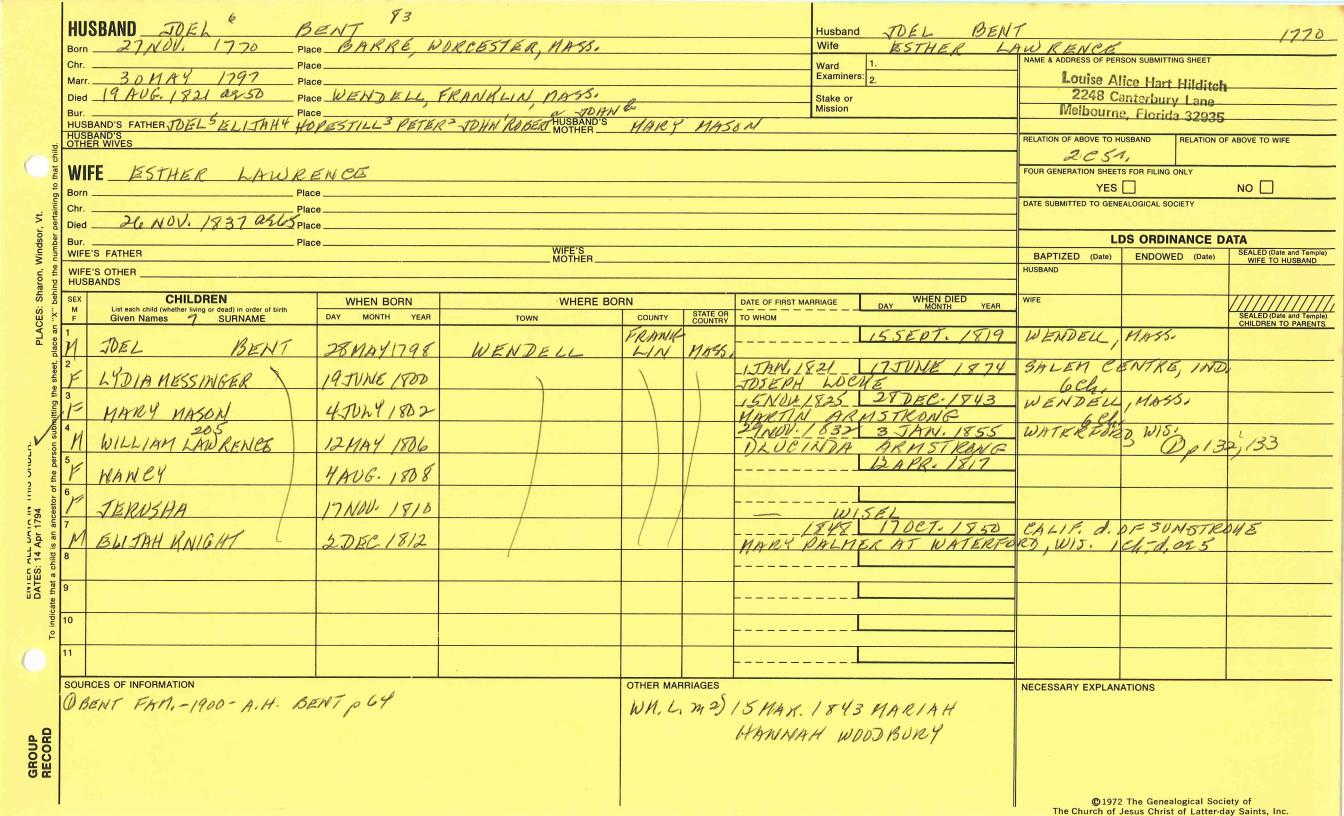 HUSBAND JOEL 6 BENT 93
Born 27 NOV. 1770 Place BARRE, WORCESTER, MASS.
Chr. Place
Marr. 30 MAY 1797 Place
Died 19 AUG. 1821 ag 50 Place WENDELL, FRANKLIN, MASS.
Bur. Place
HUSBAND'S FATHER JOEL5 ELIJAH4 HOPESTILL3 PETER2 JOHN' ROBERT or JOHN HUSBAND'S MOTHER MARY MASON
HUSBAND'S OTHER WIVES
WIFE ESTHER LAWRENCE
Born Place
Chr. Place
Died 26 NOV. 1837 ag 65 Place
Bur. Place
WIFE'S FATHER WIFE'S MOTHER
WIFE'S OTHER HUSBANDS
Husband JOEL BENT 1770
Wife ESTHER LAWRENCE
Ward Examiners: 1. 2.
Stake or Mission
NAME & ADDRESS OF PERSON SUBMITTING SHEET
Louise Alice Hart Hilditch
2248 Canterbury Lane
Melbourne, Florida 32935
RELATION OF ABOVE TO HUSBAND RELATION OF ABOVE TO WIFE
2C5r.
FOUR GENERATION SHEETS FOR FILING ONLY
YES NO
DATE SUBMITTED TO GENEALOGICAL SOCIETY
LDS ORDINANCE DATA
BAPTIZED (Date) ENDOWED (Date) SEALED (Date and Temple) WIFE TO HUSBAND
HUSBAND
WIFE
SEALED (Date and Temple) CHILDREN TO PARENTS
SEX M F
CHILDREN
List each child (whether living or dead) in order of birth
Given Names 7 SURNAME
WHEN BORN
DAY MONTH YEAR
WHERE BORN
TOWN COUNTY STATE OR COUNTRY
DATE OF FIRST MARRIAGE
TO WHOM
WHEN DIED
DAY MONTH YEAR
1 M JOEL BENT 28 MAY 1798 WENDELL FRANKLIN MASS. 15 SEPT. 1819 WENDELL, MASS.
2 F LYDIA MESSINGER 19 JUNE 1800 1 JAN. 1821 17 JUNE 1874 SALEM CENTRE, IND.
JOSEPH LOCKE 6 Ch.
3 F MARY MASON 4 JULY 1802 15 NOV. 1825 28 DEC. 1843 WENDELL, MASS.
MARTIN ARMSTRONG 6 Ch.
4 M WILLIAM LAWRENCE 205 12 MAY 1806 29 NOV. 1832 3 JAN. 1855 WATERFORD, WIS.
DLUCINDA ARMSTRONG ① p 132, 133
5 F NANCY 4 AUG. 1808 12 APR. 1817
6 F JERUSHA 17 NOV. 1810
— WISEL
7 M ELIJAH KNIGHT 2 DEC 1812 1848 17 OCT. 1850 CALIF. d. OF SUNSTROKE
MARY PALMER AT WATERFORD, WIS. 1 ch-d. ag 5
8
9
10
11
SOURCES OF INFORMATION
① BENT FAM. -1900- A.H. BENT p 64
OTHER MARRIAGES
WM. L. m 2) 15 MAR. 1843 MARIAH
HANNAH WOODBURY
NECESSARY EXPLANATIONS
©1972 The Genealogical Society of
The Church of Jesus Christ of Latter-day Saints, Inc.
PLACES: Sharon, Windsor, Vt.
To indicate that a child is an ancestor of the person submitting the sheet, place an "X" behind the number pertaining to that child.
ENTER ALL DATA IN THIS ORDER:
DATES: 14 Apr 1794
GROUP RECORD